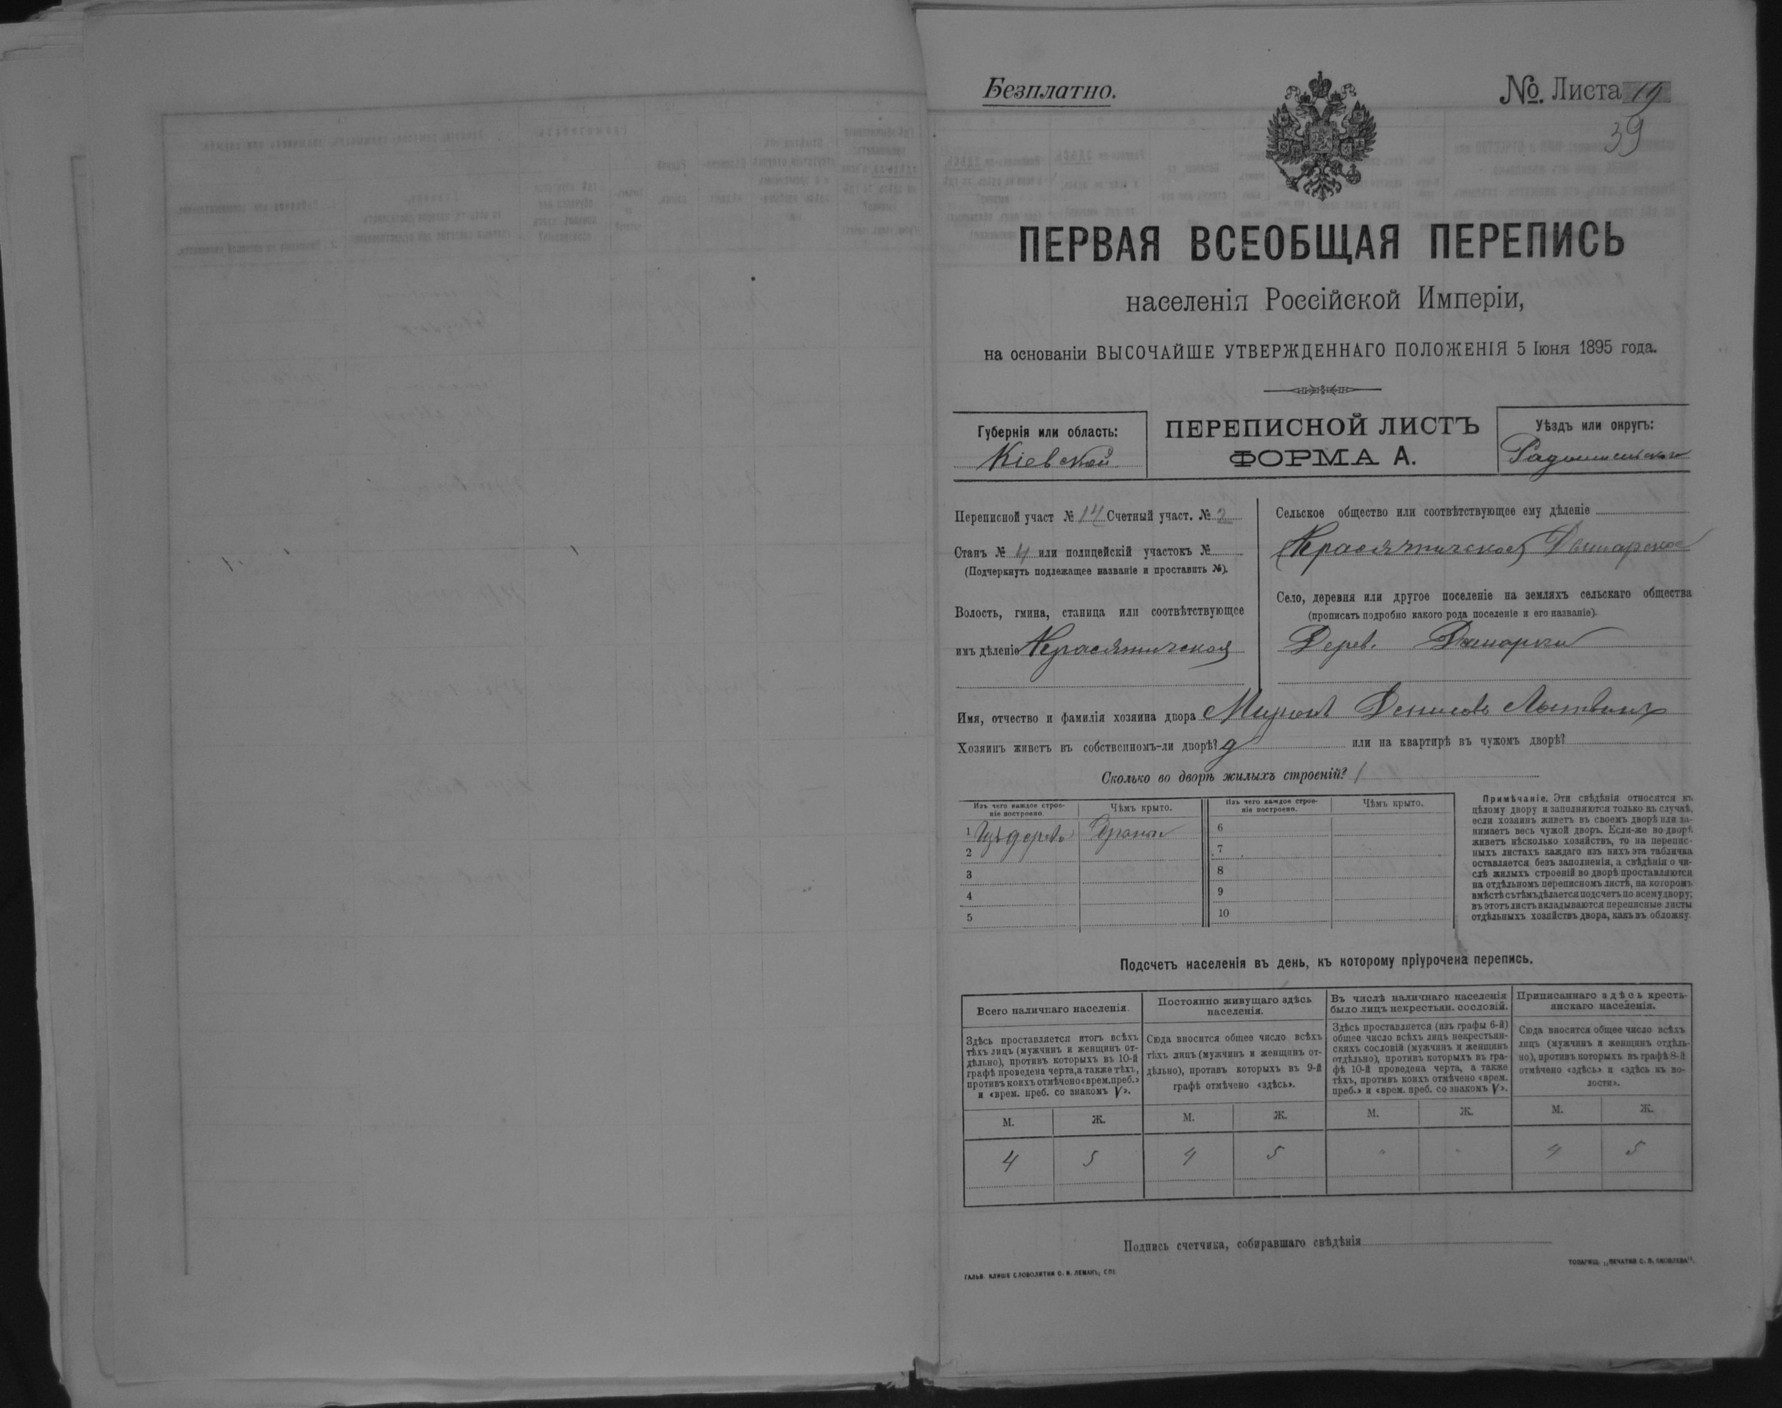 Безплатно.
№. Листа 19
39
ПЕРВАЯ ВСЕОБЩАЯ ПЕРЕПИСЬ
населенія Россійской Имперіи,
на основаніи ВЫСОЧАЙШЕ УТВЕРЖДЕННАГО ПОЛОЖЕНІЯ 5 Іюня 1895 года.
Губернія или область:
Кіевской
ПЕРЕПИСНОЙ ЛИСТЪ
ФОРМА А.
Уѣздъ или округъ:
Радомысльскаго
Переписной участ № 14 Счетный участ. № 2
Станъ № 4 или полицейскій участокъ №
(Подчеркнуть подлежащее названіе и проставить №).
Волость, гмина, станица или соотвѣтствующее
имъ дѣленіе Красятичская
Сельское общество или соотвѣтствующее ему дѣленіе
Красятичское
Село, деревня или другое поселеніе на земляхъ сельскаго общества
(прописать подробно какого рода поселеніе и его названіе).
Дерев.
Имя, отчество и фамилія хозяина двора Миронъ Денисовъ
Хозяинъ живетъ въ собственномъ-ли дворѣ? д или на квартирѣ въ чужомъ дворѣ?
Сколько во дворѣ жилыхъ строеній? 1
Изъ чего каждое строе-
ніе построено.
Чѣмъ крыто.
Изъ чего каждое строе-
ніе построено.
Чѣмъ крыто.
1 Изъ дерева
2
3
4
5
6
7
8
9
10
Примѣчаніе. Эти свѣдѣнія относятся къ
цѣлому двору и заполняются только въ случаѣ,
если хозяинъ живетъ въ своемъ дворѣ или за-
нимаетъ весь чужой дворъ. Если-же во дворѣ
живетъ нѣсколько хозяйствъ, то на перепис-
ныхъ листахъ каждаго изъ нихъ эта табличка
оставляется безъ заполненія, а свѣдѣнія о чи-
слѣ жилыхъ строеній во дворѣ проставляются
на отдѣльномъ переписномъ листѣ, на которомъ
вмѣстѣ съ тѣмъ дѣлается подсчетъ по всему двору;
въ этотъ листъ вкладываются переписные листы
отдѣльныхъ хозяйствъ двора, какъ въ обложку.
Подсчетъ населенія въ день, къ которому пріурочена перепись.
Всего наличнаго населенія.
Здѣсь проставляется итогъ всѣхъ
тѣхъ лицъ (мужчинъ и женщинъ от-
дѣльно), противъ которыхъ въ 10-й
графѣ проведена черта, а также тѣхъ,
противъ коихъ отмѣчено «врем. преб.»
и «врем. преб. со знакомъ V».
Постоянно живущаго здѣсь
населенія.
Сюда вносится общее число всѣхъ
тѣхъ лицъ (мужчинъ и женщинъ от-
дѣльно), противъ которыхъ въ 9-й
графѣ отмѣчено «здѣсь».
Въ числѣ наличнаго населенія
было лицъ некрестьян. сословій.
Здѣсь проставляется (изъ графы 6-й)
общее число всѣхъ лицъ некрестьян-
скихъ сословій (мужчинъ и женщинъ
отдѣльно), противъ которыхъ въ гра-
фѣ 10-й проведена черта, а также
тѣхъ, противъ коихъ отмѣчено «врем.
преб.» и «врем. преб. со знакомъ V».
Приписаннаго здѣсь кресть-
янскаго населенія.
Сюда вносится общее число всѣхъ
лицъ (мужчинъ и женщинъ отдѣль-
но), противъ которыхъ въ графѣ 8-й
отмѣчено «здѣсь» и «здѣсь къ во-
лости».
М. Ж. М. Ж. М. Ж. М. Ж.
4 5 4 5 - - 4 5
Подпись счетчика, собиравшаго свѣдѣнія
ГАЛЬВ. КЛИШЕ СЛОВОЛИТНИ О. И. ЛЕМАНЪ, СПБ
ТОВАРИЩ. „ПЕЧАТНЯ С. П. ЯКОВЛЕВА".